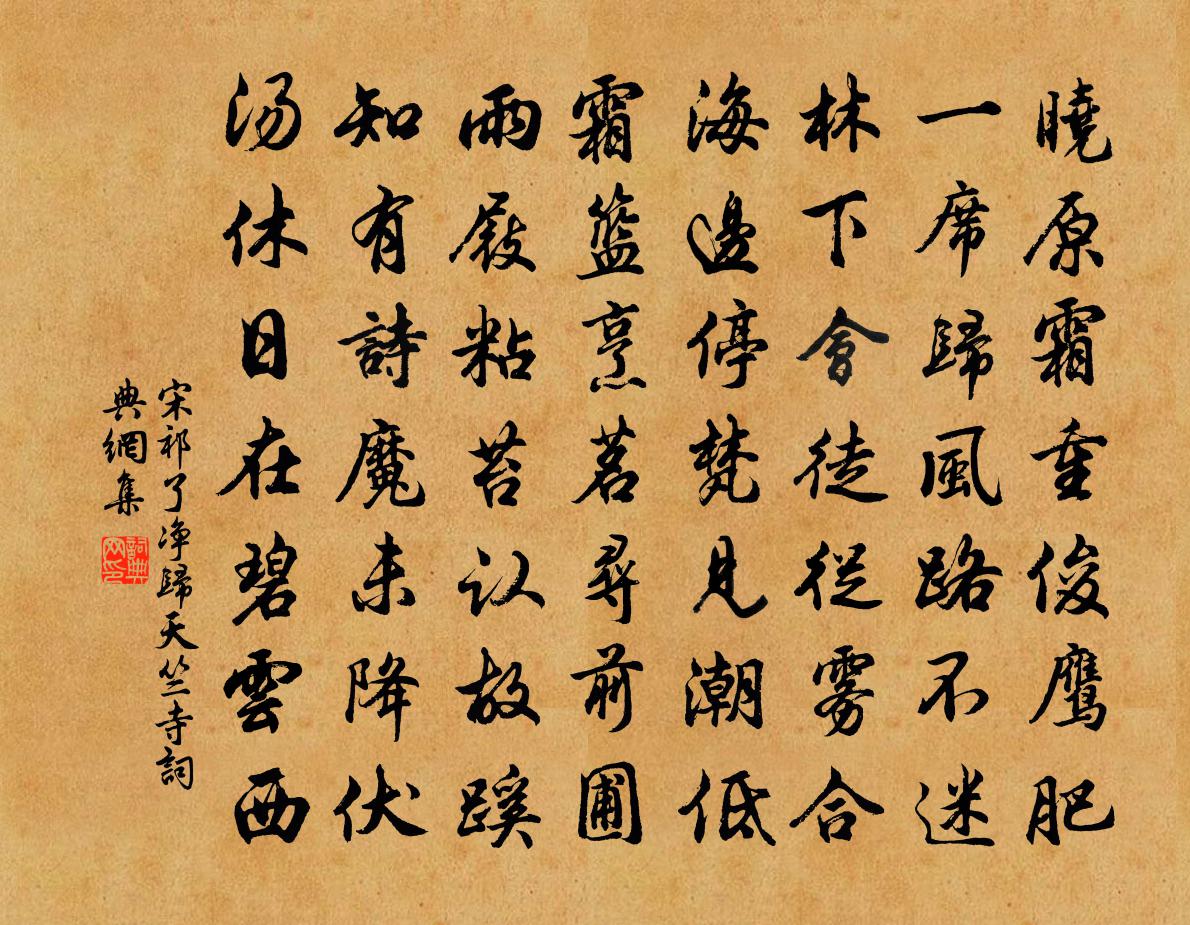 曉原霜重俊鹰肥
一席歸風路不迷
林下會徒從雾合
海邊停梵見潮低
霜籃烹茗尋前圃
雨屐粘苔认故蹊
知有詩魔未降伏
汤休日在碧雲西
宋祁了净歸天竺寺詞
典網集
詞典
网印